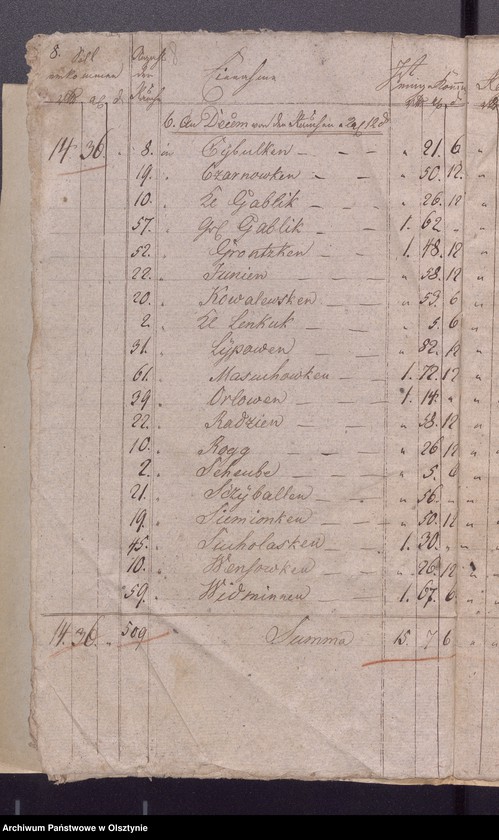 8. Soll einkommen
rtl gr d.
Anzahl der Rauche
Einnahme
Ist
einge Komm
rtl gr d
6. An Decem von den Rauchen a 2 gr 12 d
14 36 " 8. in Cybulken — — " 21. 6 "
19. " Czarnowken — " 50. 12. "
10. " Kl Gablik — — " 26. 12 "
57. " Gr Gablik — — 1. 62 " "
52. " Grontzken — — 1. 48. 12 "
22. " Junien — — " 58. 12 "
20. " Kowalewsken — " 53. 6 "
2. " Kl Lenkuk — — " 5. 6 "
31. " Lypowen — — " 82. 12 "
61. " Masuchowken — — 1. 72. 12 "
39. " Orlowen — — 1. 14. " "
22. " Radzien — — " 58. 12 "
10. " Rogg — — " 26 12 "
2. " Scheube — — " 5. 6 "
21. " Sczyballen — — " 56. " "
19. " Siemionken — — " 50. 12 "
45. " Sucholasken — — 1. 30. " "
10. " Wensowken — — " 26. 12 "
59. " Widminnen — — 1. 67. 6 "
14. 36. " 509 " Summa 15. 7 6 "
Archiwum Państwowe w Olsztynie